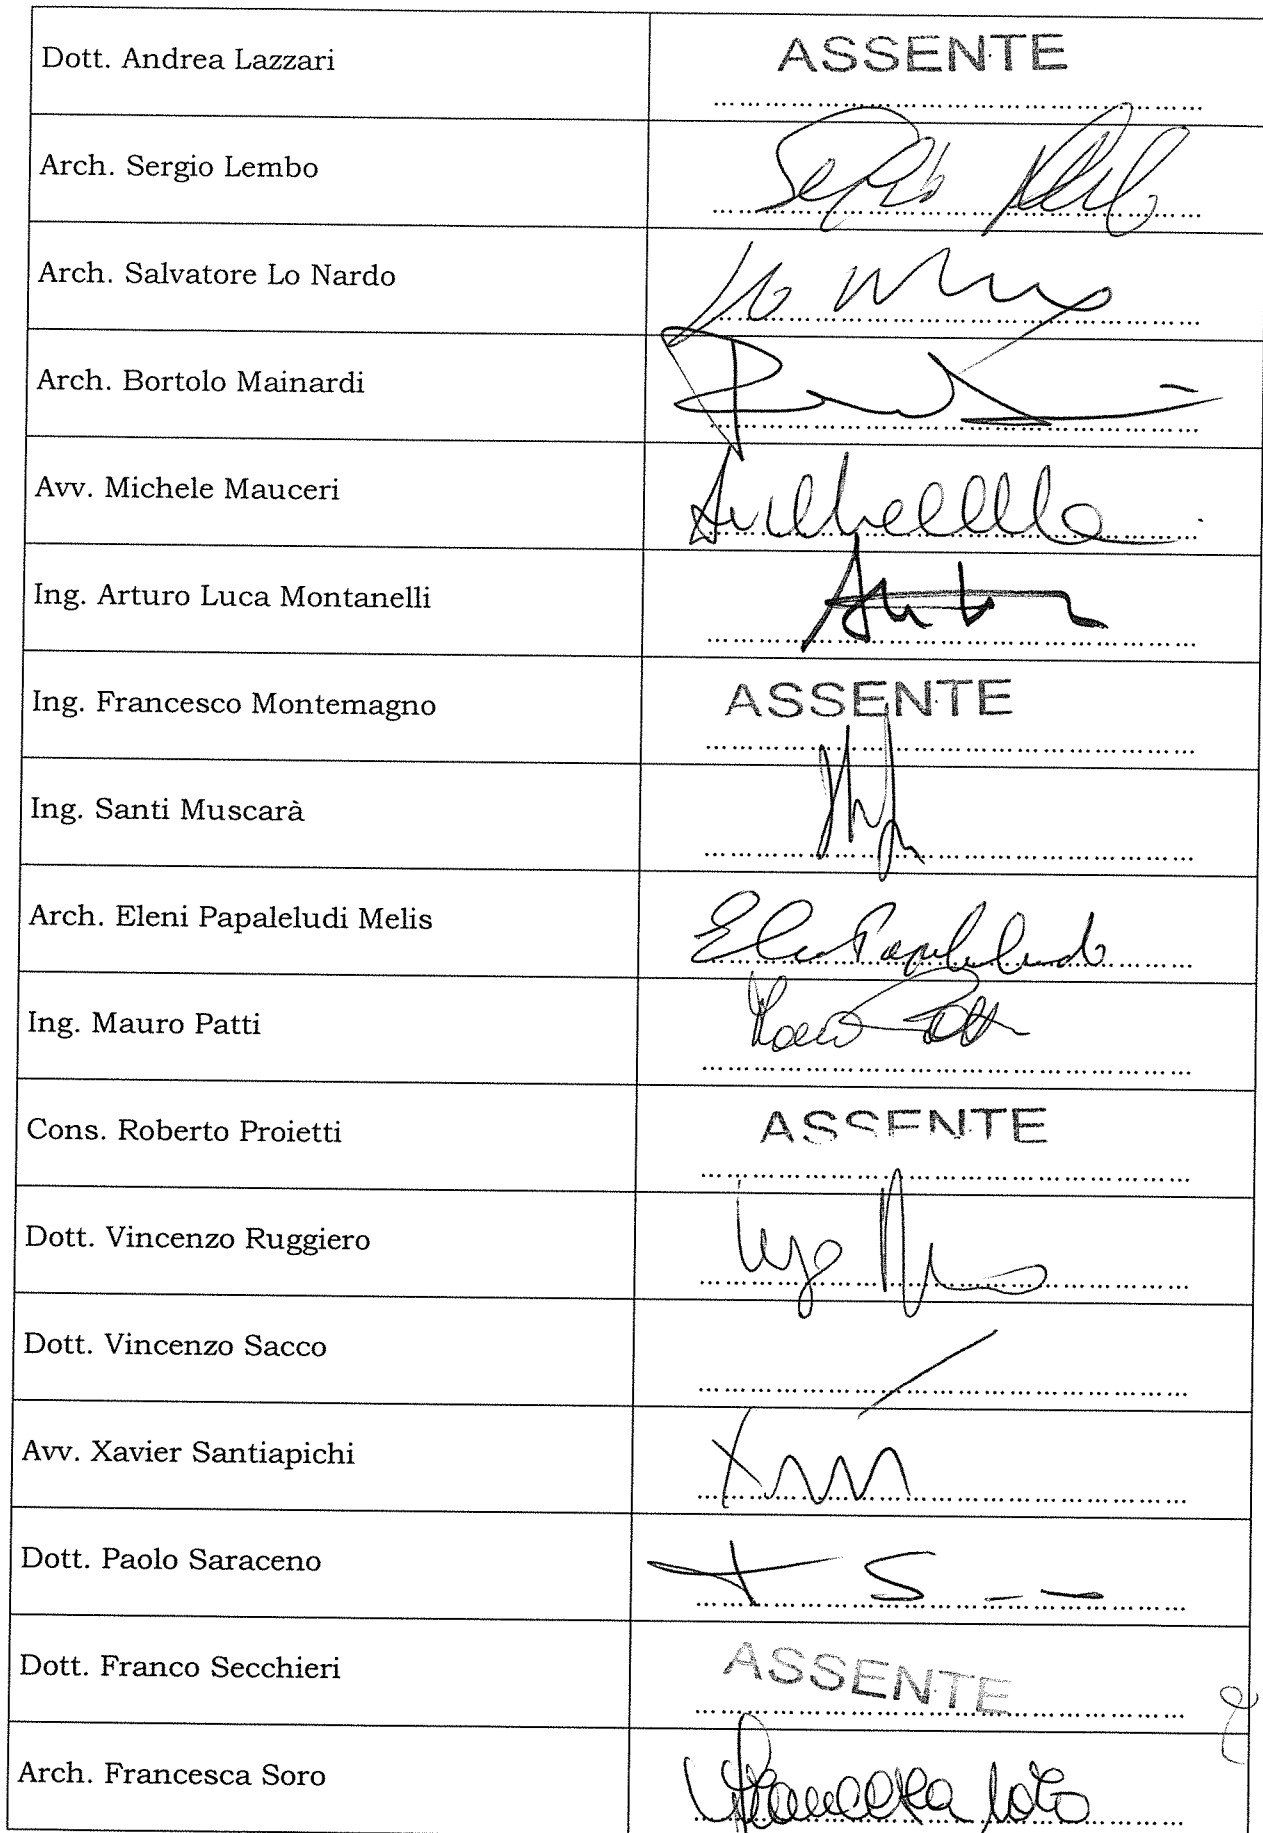 Dott. Andrea Lazzari
ASSENTE
Arch. Sergio Lembo
Arch. Salvatore Lo Nardo
Arch. Bortolo Mainardi
Avv. Michele Mauceri
Ing. Arturo Luca Montanelli
Ing. Francesco Montemagno
ASSENTE
Ing. Santi Muscarà
Arch. Eleni Papaleludi Melis
Ing. Mauro Patti
Cons. Roberto Proietti
ASSENTE
Dott. Vincenzo Ruggiero
Dott. Vincenzo Sacco
Avv. Xavier Santiapichi
Dott. Paolo Saraceno
Dott. Franco Secchieri
ASSENTE
Arch. Francesca Soro
Francesca Soro